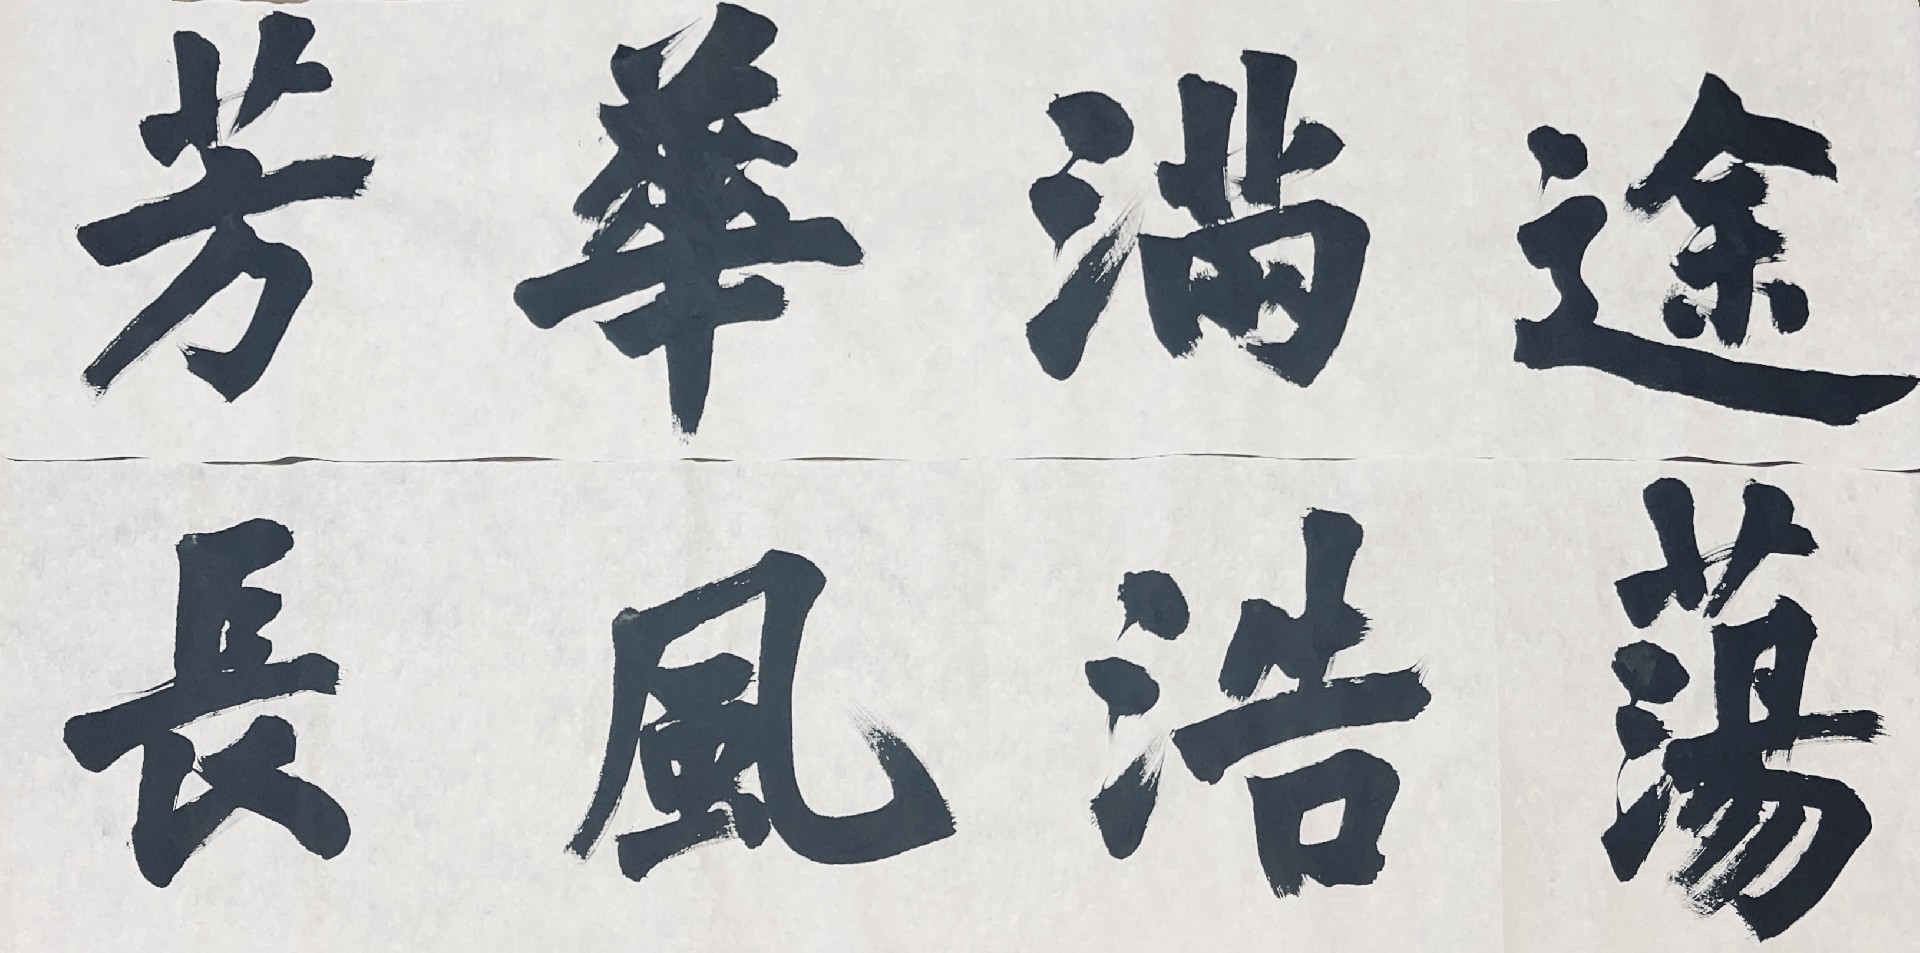 芳華滿途
長風浩蕩